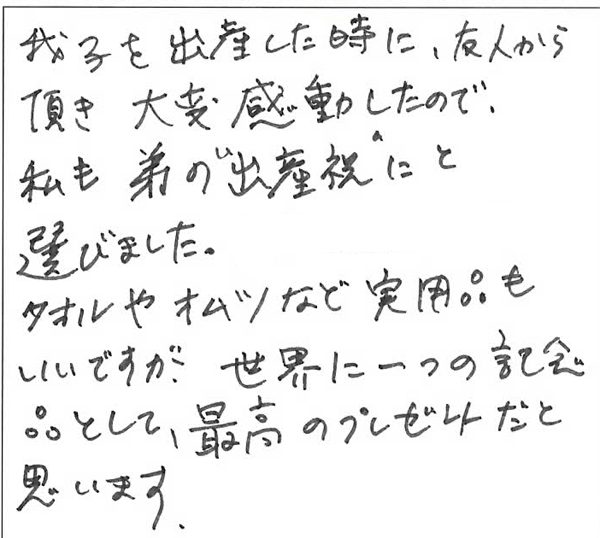 我子を出産した時に、友人から
頂き 大変感動したので、
私も 弟の"出産祝"にと
選びました。
タオルやオムツなど 実用品も
いいですが、世界に一つの記念
品として、最高のプレゼントだと
思います。